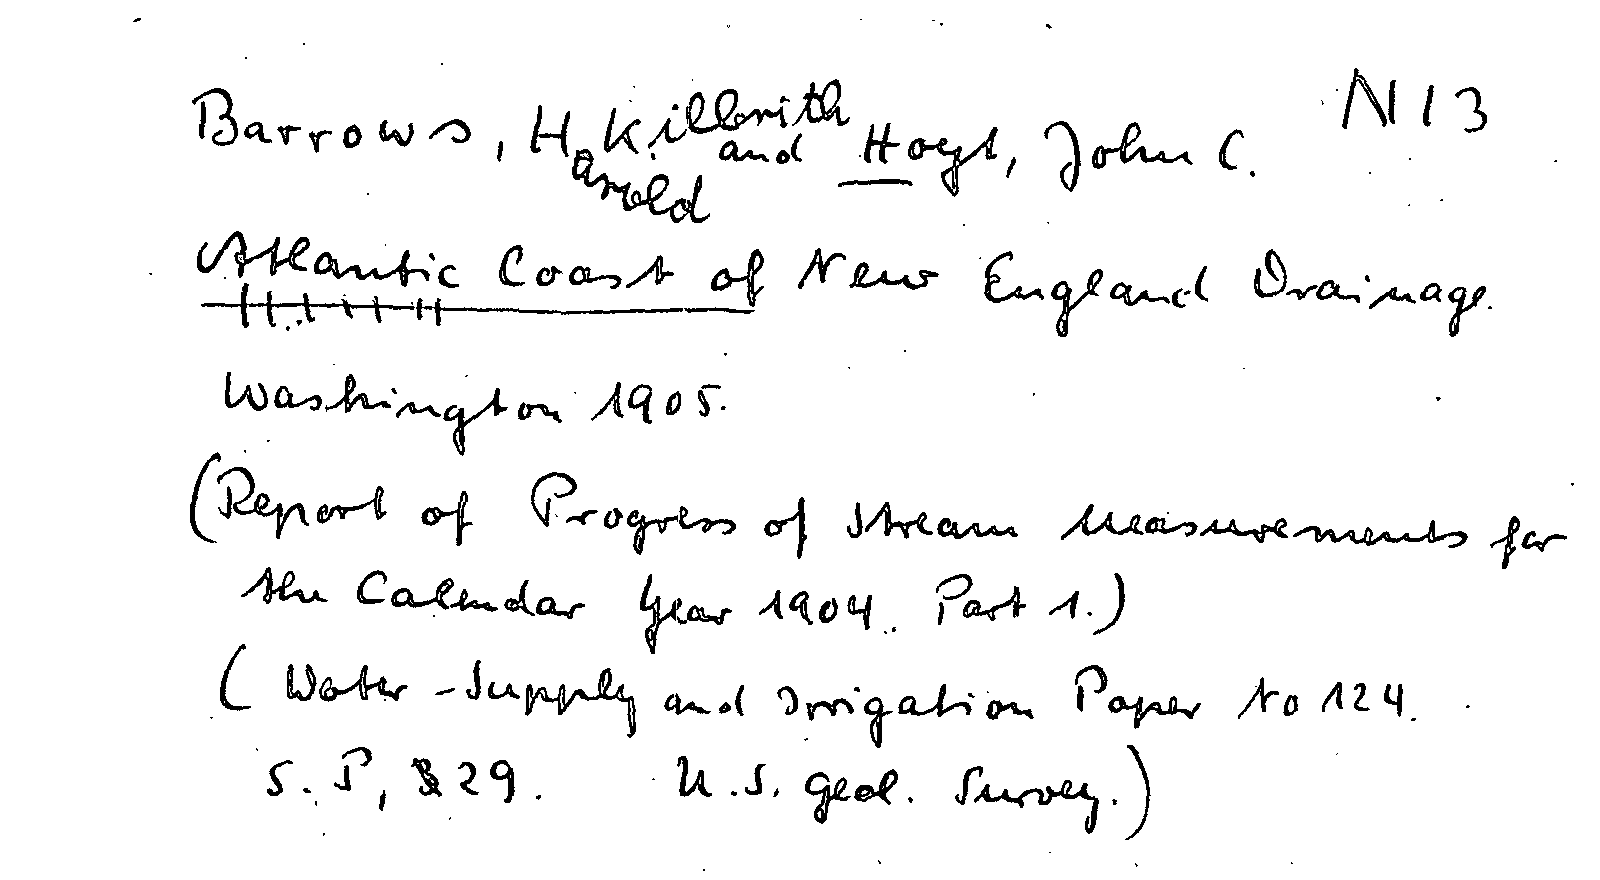 Barrows, Harold Killbrith and Hoyt, John C. N 13
Atlantic Coast of New England Drainage.
Washington 1905.
(Report of Progress of Stream Measurements for
the Calendar Year 1904. Part 1.)
(Water-Supply and Irrigation Paper No 124.
S. P, 29. U.S. Geol. Survey.)